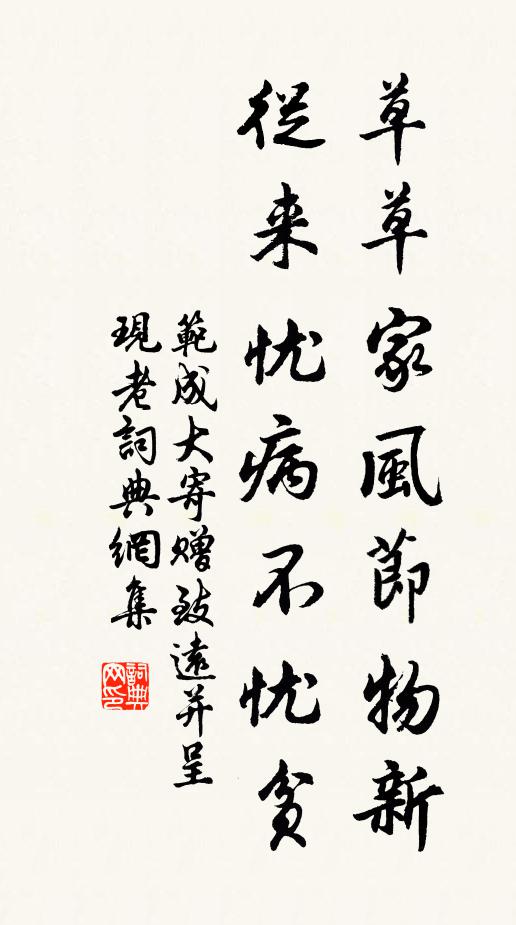 草草家風節物新
從来忧病不忧貧
範成大寄贈致遠并呈
現老詞典網集
詞典网印